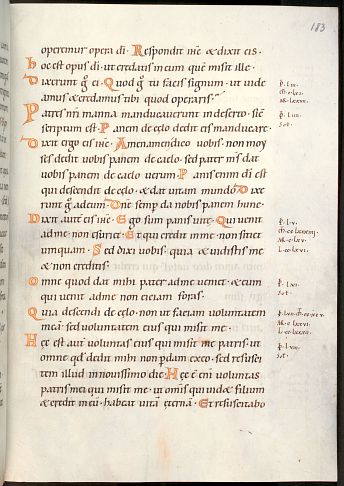 183
operemur opera di. Respondit ihc & dixit eis.
hoc est opus di. ut credatis in eum quē misit ille.
Dixerunt g̊ ei. Quod g̊ tu facis signum. ut uide
amus & credamus tibi quod operaris.
Patres nr̄i manna manducauerunt in deserto. sic̄
scriptum est. Panem de cęlo dedit eis manducare.
Dixit ergo eis ihc. Amen amen dico uobis. non moy
ses dedit uobis panem de caelo. sed pater m̄s dat
uobis panem de caelo uerum. Panis enim di est
qui descendit de cęlo. & dat uitam mundo. Dixe
runt g̊ ad eum. Dn̄e semp da nobis panem hunc.
Dixit aut̄ eis ihc. Ego sum panis uitę. Qui uenit
ad me. non esuriet. Et qui credit in me. non sitiet
umquam. Sed dixi uobis. quia & uidistis me
& non creditis.
Omne quod dat mihi pater. ad me ueniet. & eum
qui uenit ad me non eiciam foras.
Quia descendi de cęlo. non ut faciam uoluntatem
meā. sed uoluntatem eius qui misit me.
Hęc est aut̄ uoluntas eius qui misit me patris. ut
omne qd̄ dedit mihi non p̄dam ex eo. sed resusci
tem illud in nouissimo die. Hęc ē eni uoluntas
patris mei qui misit me. ut omis qui uid& filium
& credit in eū. habeat uitā ęternā. Et resuscitabo